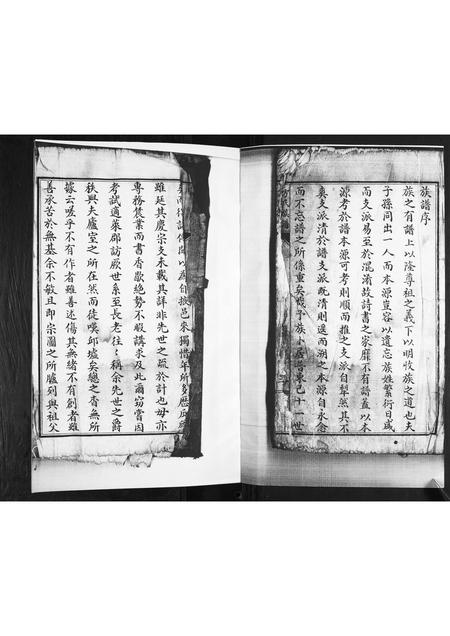 族譜序
族之有譜上以隆尊祖之義下以明收族之道也夫
子孫同出一人而本源豈容以遺忘族姓繁衍日盛
而支派易至於混淆故詩書之家靡不有譜蓋以本
源考於譜本源可考則順而推之支派自犁然其不
奠支派清於譜支派既清則遞而溯之本源自永念
而不忘譜之所係重矣哉予族卜居昔東已十一世
以為自 邑來獨惜年所多歷
雖延其慶宗支未載其詳非先世之疏於計也毋亦
專務農業而書香歇絶勢不暇講求及此爾窃嘗因
考試適萊郡訪厥世系至長老往々稱余先世之爵
秩與夫廬室之所在然而徒嘆邱墟矣總之杳無所
據云嗟乎不有作者雖善述傷其無緒不有創者雖
善承苦於無基余不敏且即宗圖之所臚列與祖父